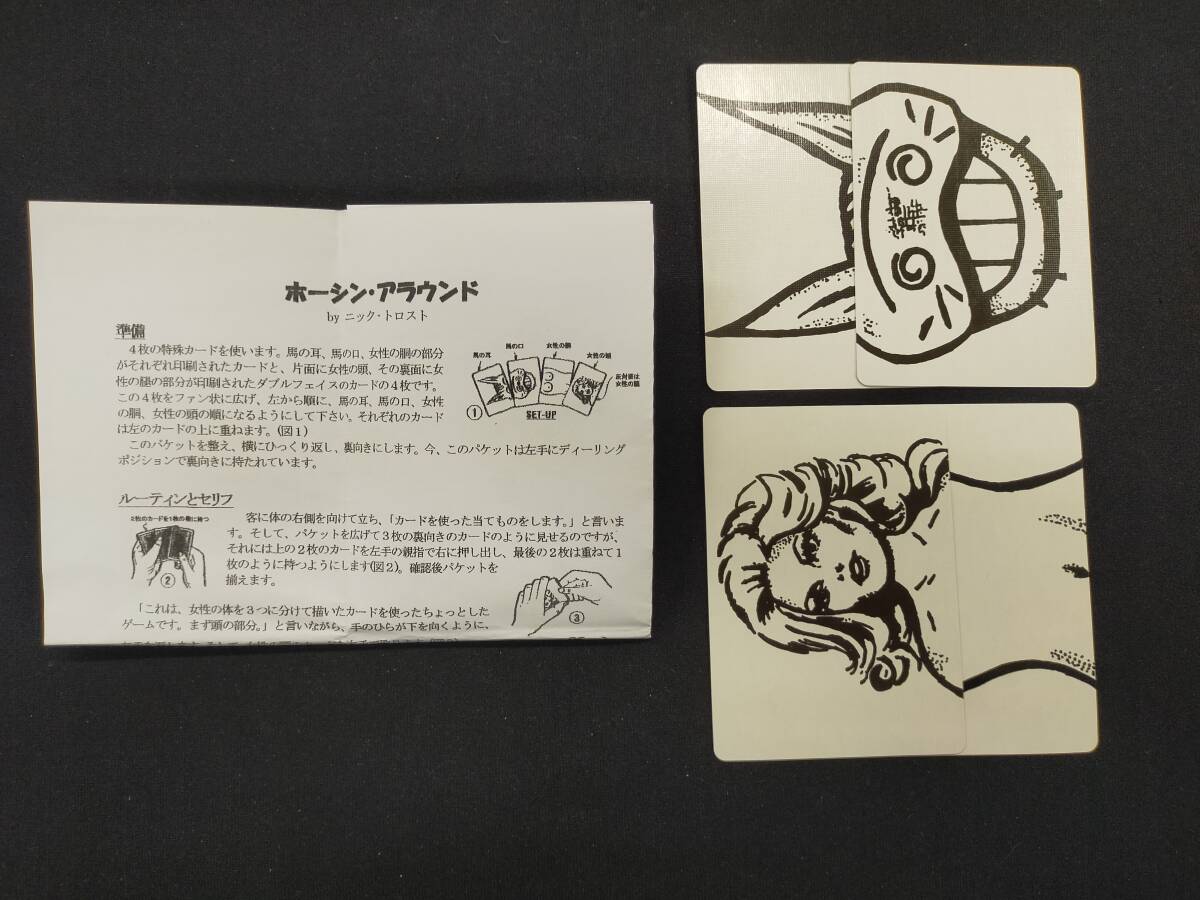 ホーシン・アラウンド
by ニック・トロスト
準備
4枚の特殊カードを使います。馬の耳、馬の口、女性の胴の部分
がそれぞれ印刷されたカードと、片面に女性の頭、その裏面に女
性の腿の部分が印刷されたダブルフェイスのカードの4枚です。
この4枚をファン状に広げ、左から順に、馬の耳、馬の口、女性
の胴、女性の頭の順になるようにして下さい。それぞれのカード
は左のカードの上に重ねます。(図1)
このパケットを整え、横にひっくり返し、裏向きにします。今、このパケットは左手にディーリング
ポジションで裏向きに持たれています。
馬の耳
馬の口
女性の胴
女性の頭
反対面は
女性の腿
①
SET-UP
ルーティンとセリフ
2枚のカードを1枚の様に持つ
②
客に体の右側を向けて立ち、「カードを使った当てものをします。」と言いま
す。そして、パケットを広げて3枚の裏向きのカードのように見せるのですが、
それには上の2枚のカードを左手の親指で右に押し出し、最後の2枚は重ねて1
枚のように持つようにします(図2)。確認後パケットを
揃えます。
③
「これは、女性の体を3つに分けて描いたカードを使ったちょっとした
ゲームです。まず頭の部分。」と言いながら、手のひらが下を向くように、